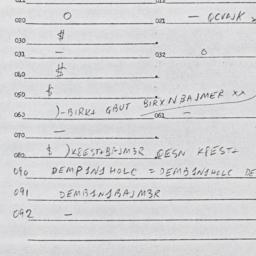 020 O 021 —
030 $
031 — 032 O
040 $
050 $
060 )-BIRK+ GBUT BIRXNBAJMER XX 061 —
070 —
080 $ )KEEST+BAJM3R
090 DEMP1N1HOLC = DEMB1N1HOLC DE
091 DEMB1N1BAJM3R
092 —